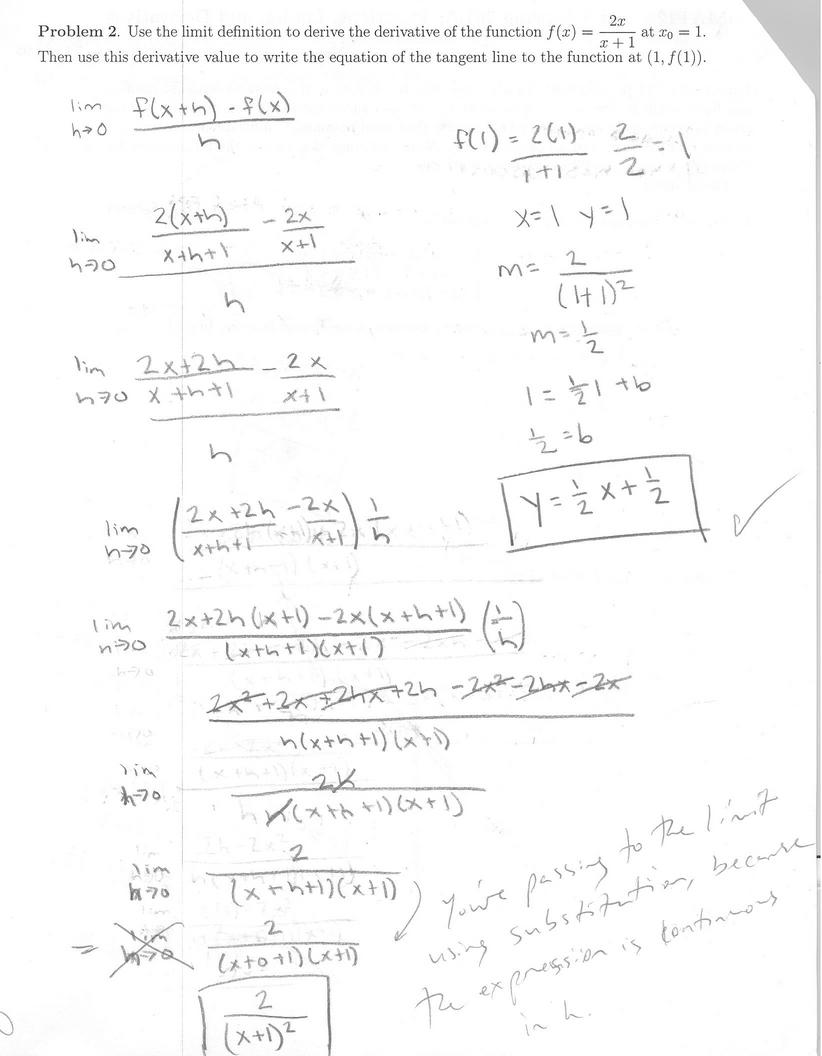 Problem 2. Use the limit definition to derive the derivative of the function f(x) = 2x/(x + 1) at x₀ = 1.
Then use this derivative value to write the equation of the tangent line to the function at (1, f(1)).
lim h→0 (f(x+h) - f(x))/h
lim h→0 (2(x+h)/(x+h+1) - 2x/(x+1))/h
lim h→0 ((2x+2h)/(x+h+1) - 2x/(x+1))/h
lim h→0 ((2x+2h)/(x+h+1) - 2x/(x+1)) 1/h
lim h→0 (2x+2h(x+1) - 2x(x+h+1))/((x+h+1)(x+1)) (1/h)
(2x²+2x+2hx+2h - 2x² - 2hx - 2x)/(h(x+h+1)(x+1))
lim h→0 2h/(h(x+h+1)(x+1))
lim h→0 2/((x+h+1)(x+1))
= lim h→0 2/((x+0+1)(x+1))
2/(x+1)²
f(1) = 2(1)/(1+1) 2/2 = 1
x=1 y=1
m= 2/(1+1)²
m= 1/2
1 = 1/2 1 + b
1/2 = b
y = 1/2 x + 1/2
✓
you're passing to the limit
using substitution, because
the expression is continuous
in h.